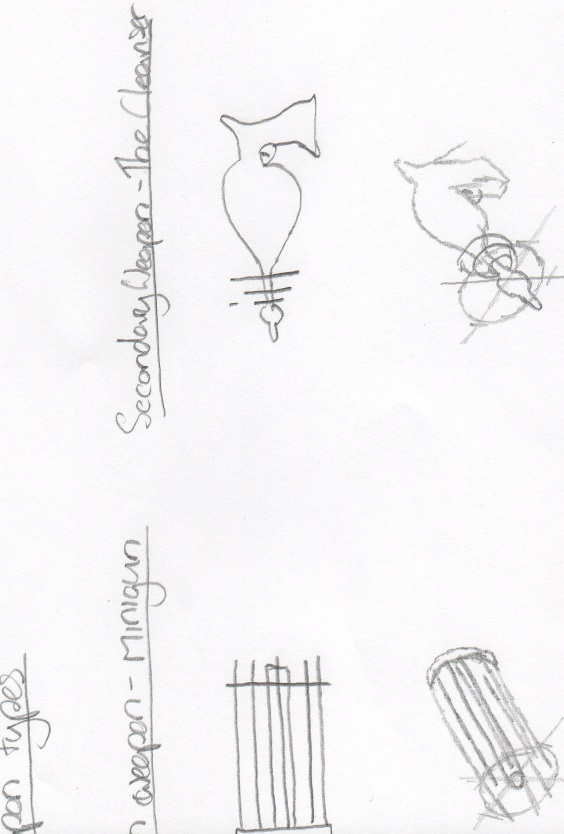 pon types
n weapon - Minigun
Secondary Weapon - The Cleanser